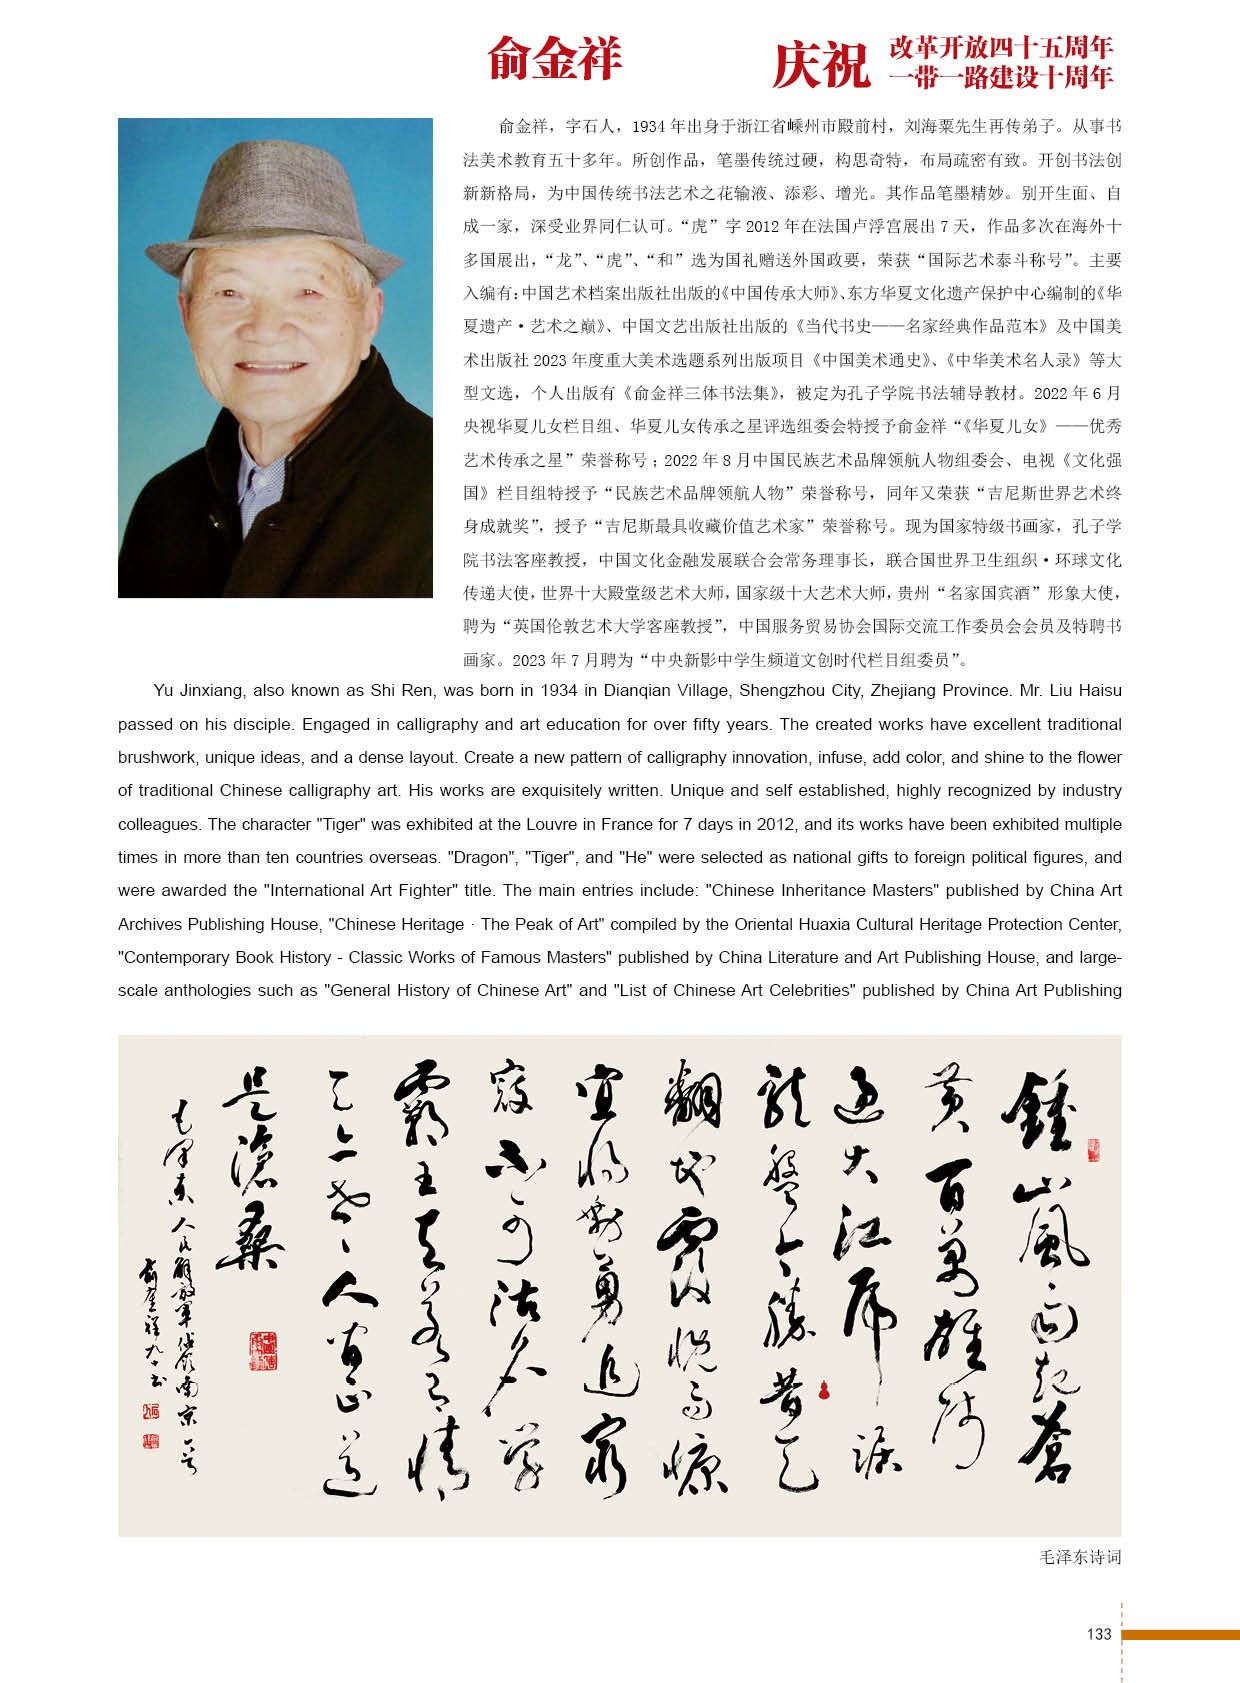 俞金祥
庆祝 改革开放四十五周年
一带一路建设十周年
俞金祥，字石人，1934 年出身于浙江省嵊州市殿前村，刘海粟先生再传弟子。从事书
法美术教育五十多年。所创作品，笔墨传统过硬，构思奇特，布局疏密有致。开创书法创
新新格局，为中国传统书法艺术之花输液、添彩、增光。其作品笔墨精妙。别开生面、自
成一家，深受业界同仁认可。“虎”字 2012 年在法国卢浮宫展出 7 天，作品多次在海外十
多国展出，“龙”、“虎”、“和”选为国礼赠送外国政要，荣获“国际艺术泰斗称号”。主要
入编有：中国艺术档案出版社出版的《中国传承大师》、东方华夏文化遗产保护中心编制的《华
夏遗产·艺术之巅》、中国文艺出版社出版的《当代书史——名家经典作品范本》及中国美
术出版社 2023 年度重大美术选题系列出版项目《中国美术通史》、《中华美术名人录》等大
型文选，个人出版有《俞金祥三体书法集》，被定为孔子学院书法辅导教材。2022 年 6 月
央视华夏儿女栏目组、华夏儿女传承之星评选组委会特授予俞金祥“《华夏儿女》——优秀
艺术传承之星”荣誉称号；2022 年 8 月中国民族艺术品牌领航人物组委会、电视《文化强
国》栏目组特授予“民族艺术品牌领航人物”荣誉称号，同年又荣获“吉尼斯世界艺术终
身成就奖”，授予“吉尼斯最具收藏价值艺术家”荣誉称号。现为国家特级书画家，孔子学
院书法客座教授，中国文化金融发展联合会常务理事长，联合国世界卫生组织·环球文化
传递大使，世界十大殿堂级艺术大师，国家级十大艺术大师，贵州“名家国宾酒”形象大使，
聘为“英国伦敦艺术大学客座教授”，中国服务贸易协会国际交流工作委员会会员及特聘书
画家。2023 年 7 月聘为“中央新影中学生频道文创时代栏目组委员”。
Yu Jinxiang, also known as Shi Ren, was born in 1934 in Dianqian Village, Shengzhou City, Zhejiang Province. Mr. Liu Haisu
passed on his disciple. Engaged in calligraphy and art education for over fifty years. The created works have excellent traditional
brushwork, unique ideas, and a dense layout. Create a new pattern of calligraphy innovation, infuse, add color, and shine to the flower
of traditional Chinese calligraphy art. His works are exquisitely written. Unique and self established, highly recognized by industry
colleagues. The character "Tiger" was exhibited at the Louvre in France for 7 days in 2012, and its works have been exhibited multiple
times in more than ten countries overseas. "Dragon", "Tiger", and "He" were selected as national gifts to foreign political figures, and
were awarded the "International Art Fighter" title. The main entries include: "Chinese Inheritance Masters" published by China Art
Archives Publishing House, "Chinese Heritage · The Peak of Art" compiled by the Oriental Huaxia Cultural Heritage Protection Center,
"Contemporary Book History - Classic Works of Famous Masters" published by China Literature and Art Publishing House, and large-
scale anthologies such as "General History of Chinese Art" and "List of Chinese Art Celebrities" published by China Art Publishing
鍾山風雨起蒼
黄百萬雄師
過大江虎踞
龍盤今勝昔天
翻地覆慨而慷
宜將剩勇追窮
寇不可沽名學
霸王天若有情
天亦老人間正道
是滄桑
毛澤東人民解放軍佔領南京
毛泽东诗词
133